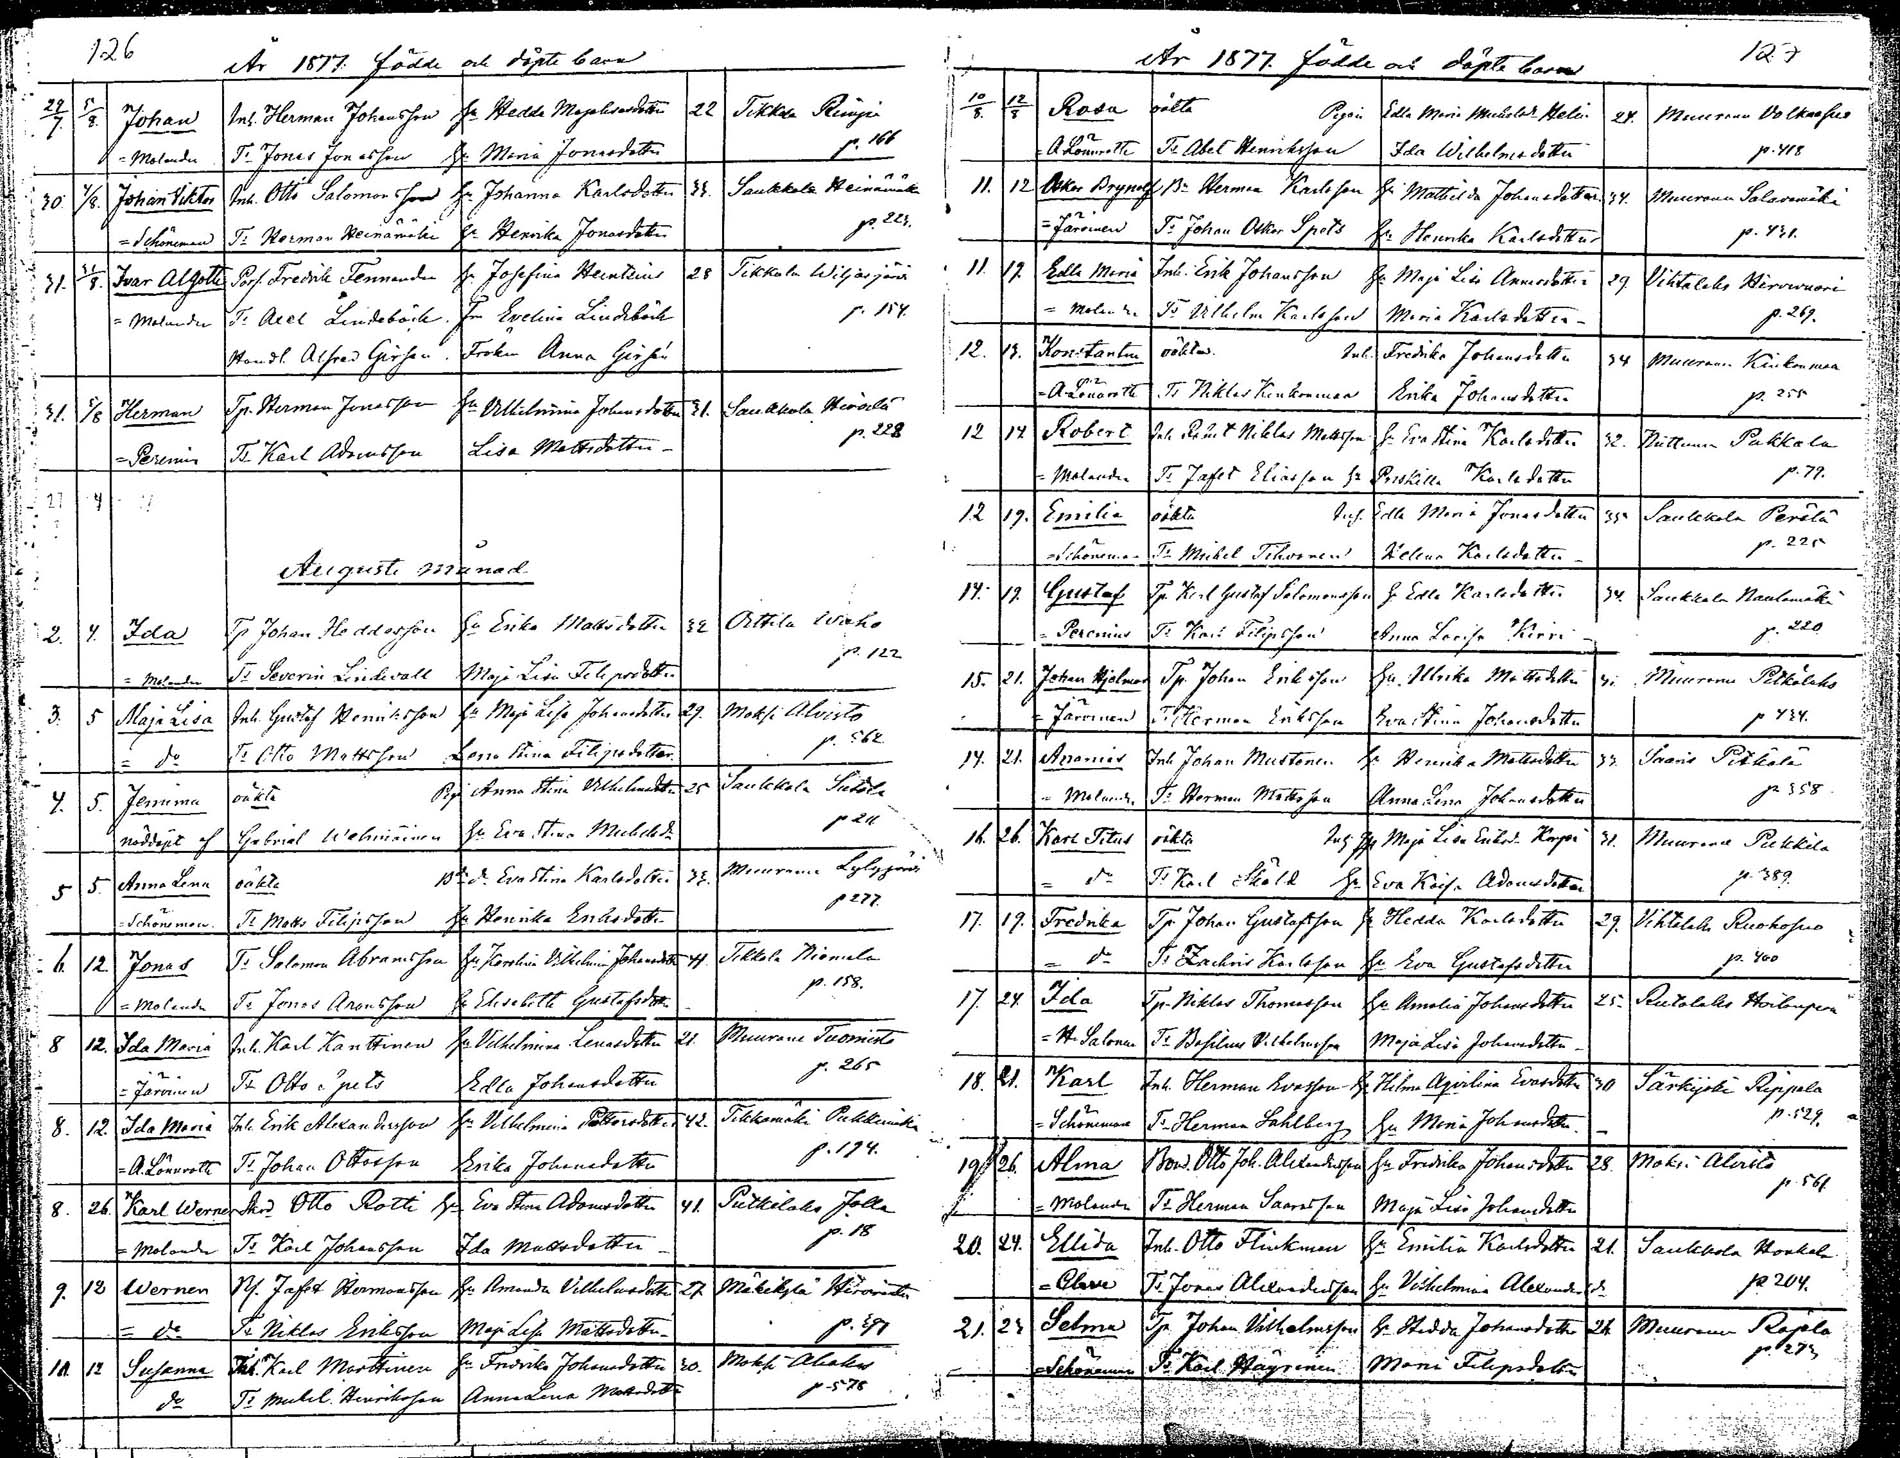 126
År 1877. födde och döpte barn
29/7. 5/8. Johan Inh. Herman Johansson Hu Hedda Majalisasdotter 22 Tikkala Rimpi
= Molander Tr. Jonas Jonasson Hu Maria Jonasdotter p. 166
30. 4/8. Johan Viktor Inh. Otto Salomonsson Hu Johanna Karlsdotter 33. Saukkola Heinämäki
= Schöneman Tr Herman Heinämäki Hu Henrika Jonasdotter p. 223.
31. 31/8. Ivar Algott Fredrik Tennander Hu Josefina Heintzius 28 Tikkala Wiljasjärvi
= Molander Tr. Axel Lindebäck. Fru Evelina Lindebäck p. 154.
Handl. Alfred Girsén. Fröken Anna Girsén
31. 5/8 Herman Tp. Herman Jonasson Hu Vilhelmina Johansdotter 31. Saukkola Hirvelä
= Perenius Tr Karl Adamsson Lisa Mattsdotter – p. 228
27 4
Augusti månad
2. 4. Ida Tp Johan Heddasson Hu Erika Mattsdotter 32 Arttila Waho
= Molander Tr Severin Lindevall Maja Lisa Filipsdotter p. 122
3. 5 Maja Lisa Inh. Gustaf Henriksson Hu Maja Lisa Johansdotter 29. Moksi Alvisto
= do Tr Otto Mattsson Lena Stina Filipsdotter p. 562
4. 5. Jemima oäkta Pig. Anna Stina Vilhelmsdotter 25 Saukkola Sutela
nöddöpt af Gabriel Welmäinen Hu Eva Stina Michelsd. p 211
5 5. Anna Lena oäkta Eva Stina Karlsdotter 33. Muurame Lylyjärvi
= Schöneman. Tr Matts Filipsson Hu Henrika Eriksdotter p 277.
6. 12. Jonas Tr Salomon Abramsson Hu Karolina Vilhelmina Johansdotter 41. Tikkala Niemelä
= Molander Tr Jonas Aronsson Hu Elisabeth Gustafsdotter p. 158.
8 12. Ida Maria Inh. Karl Kanttinen Hu Vilhelmina Lenasdotter 21. Muurame Tuomisto
= Järvinen Tr Otto Spets Edla Johansdotter p. 265
8. 12. Ida Maria Inh. Erik Alexandersson Hu Vilhelmina Pettersdotter 42. Tikkamäki
= A. Lönnroth Tr Johan Ottosson Erika Johansdotter p. 174.
8. 26. Karl Werner Otto Rotti Hu Eva Stina Adamsdotter 41. Putkilaks Jolla
= Molander Tr Karl Johansson Ida Mattsdotter p. 18
9. 12 Werner Jafet Hermansson Hu Amanda Vilhelmsdotter 27.
= do Tr Niklas Eriksson Maja Lisa Mattsdotter
10. 12 Susanna Inh. Karl Marttinen Hu Fredrika Johansdotter 30. Moksi
do Tr Michel Henriksson Anna Lena Mattsdotter p. 578
År 1877. födde och döpte barn
127
10/8. 12/8 Rosa oäkta Pigan Edla Maria Michelsdr Helin 24. Muurame Volkansuo
= A Lönnroth Tr Abel Henriksson Ida Wilhelmsdotter p. 418
11. 12 Oskar Brynolf Herman Karlsson Hu Mathilda Johansdotter 34. Muurame Salavamäki
= Järvinen Tr Johan Oskar Spets Hu Henrika Karlsdotter p. 431.
11. 19. Edla Maria Inh. Erik Johansson Hu Maja Lisa Annasdotter 29. Vihtalaks Hirvivuori
= Molander Tr Vilhelm Karlsson Maria Karlsdotter – p. 269.
12. 13. Konstantin oäkta. Inh. Fredrika Johansdotter 34 Muurame Kinkomaa
= A Lönnroth Tr Niklas Kinkomaa Erika Johansdotter p. 255
12 14 Robert Niklas Mattsson Hu Eva Stina Karlsdotter 32. Pukkala
= Molander Tr Jafet Eliasson Hu Priskilla Karlsdotter p. 79.
12 19. Emilia oäkta Inh. Edla Maria Jonasdotter 35 Saukkola Perälä
= Schöneman Tr Mickel Tihvonen Helena Karlsdotter – p. 225
14. 19 Gustaf Tp. Karl Gustaf Salomonsson Hu Edla Karlsdotter 34. Saukkola Naulamäki
= Perenius Tr Karl Filipsson Anna Lovisa Kirri – p. 220
15. 21. Johan Hjalmar Tp. Johan Eriksson Hu Ulrika Mattsdotter Muurame Pitkälaks
= Järvinen Tr Herman Eriksson Eva Stina Johansdotter p 434.
14. 21. Ananias Inh Johan Mustonen Hu Henrika Mattsdotter Saaris Pitkälä
= Molander Tr Herman Mattsson Anna Lena Johansdotter p 358
16. 26. Karl Titus oäkta Inh. Maja Lisa Eriksd. 31. Muurame Pukkila
= do Tr Karl Sköld Hu Eva Kajsa Adamsdotter p. 389.
17. 19. Fredrika Tp. Johan Gustafsson Hu Hedda Karlsdotter 29. Vihtalaks Ruokosuo
= do Tr Zachris Karlsson Hu Eva Gustafsdotter p. 400
17. 24. Ida Tp. Niklas Thomasson Hu Amalia Johansdotter 25. Rutalaks
= H. Salonen Tr Basilius Vilhelmsson Maja Lisa Johansdotter –
18. 21. Karl Inh. Herman Evasson Hu Hilma Agvilina Evasdotter 30 Särkijoki Rippala
= Schöneman Tr Herman Sahlberg Hu Maria Johansdotter p. 529.
19 26. Alma Bond. Otto Joh. Alexandersson Hu Fredrika Johansdotter 28. Moksi Alvisto
= Molander Tr Herman Saarasson Maja Lisa Johansdotter p. 561
20. 24. Ellida Inh. Otto Flinkman Hu Emilia Karlsdotter 21. Saukkola Honkala
= Clave Tr Jonas Alexandersson Hu Vilhelmina Alexandersd. p 204.
21. 23 Selma Tp. Johan Vilhelmsson Hu Hedda Johansdotter 26. Muurame Rajala
= Schöneman Tr Karl Häyrinen Maria Filipsdotter p 273